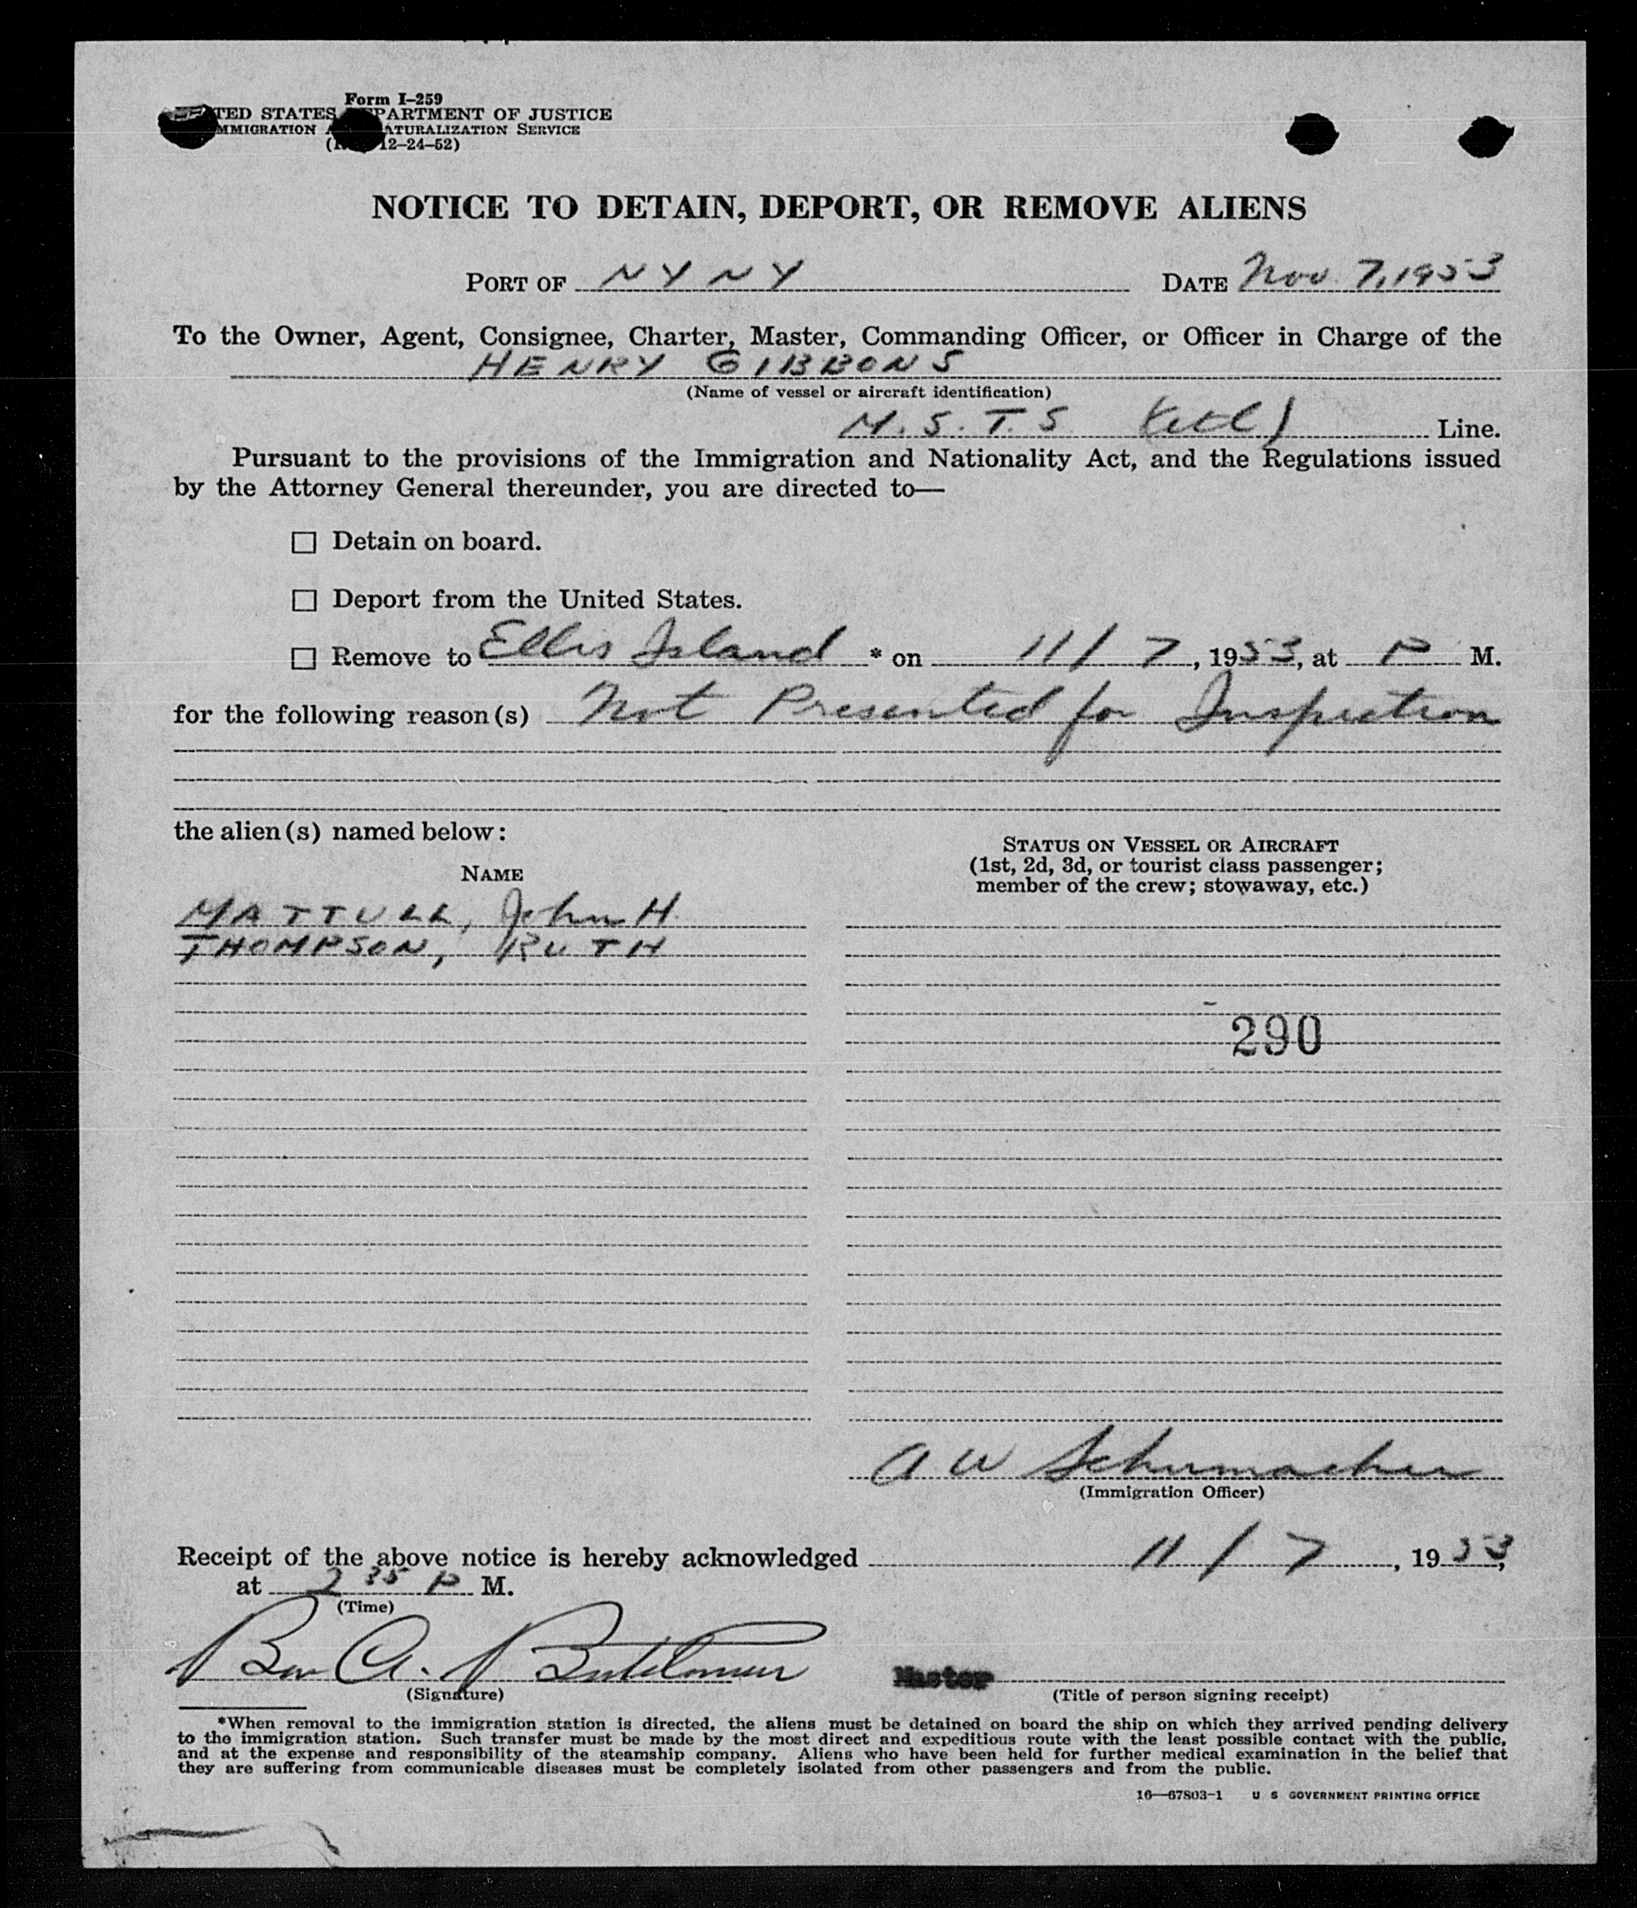 Form I-259
TED STATES PARTMENT OF JUSTICE
MMIGRATION ATURALIZATION SERVICE
12-24-52)
NOTICE TO DETAIN, DEPORT, OR REMOVE ALIENS
PORT OF NY NY DATE Nov. 7, 1953
To the Owner, Agent, Consignee, Charter, Master, Commanding Officer, or Officer in Charge of the
HENRY GIBBONS
(Name of vessel or aircraft identification)
M.S.T.S Line.
Pursuant to the provisions of the Immigration and Nationality Act, and the Regulations issued
by the Attorney General thereunder, you are directed to—
☐ Detain on board.
☐ Deport from the United States.
☐ Remove to Ellis Island * on 11/7, 1953, at P M.
for the following reason(s) Not Presented for Inspection
the alien(s) named below:
STATUS ON VESSEL OR AIRCRAFT
(1st, 2d, 3d, or tourist class passenger;
member of the crew; stowaway, etc.)
NAME
MATTULL, John H.
THOMPSON, RUTH
290
A W Schumacher
(Immigration Officer)
Receipt of the above notice is hereby acknowledged 11/7, 1953,
at 2 35 P M.
(Time)
Ben A.
(Signature)
Master
(Title of person signing receipt)
*When removal to the immigration station is directed, the aliens must be detained on board the ship on which they arrived pending delivery
to the immigration station. Such transfer must be made by the most direct and expeditious route with the least possible contact with the public,
and at the expense and responsibility of the steamship company. Aliens who have been held for further medical examination in the belief that
they are suffering from communicable diseases must be completely isolated from other passengers and from the public.
16—67803-1 U S GOVERNMENT PRINTING OFFICE